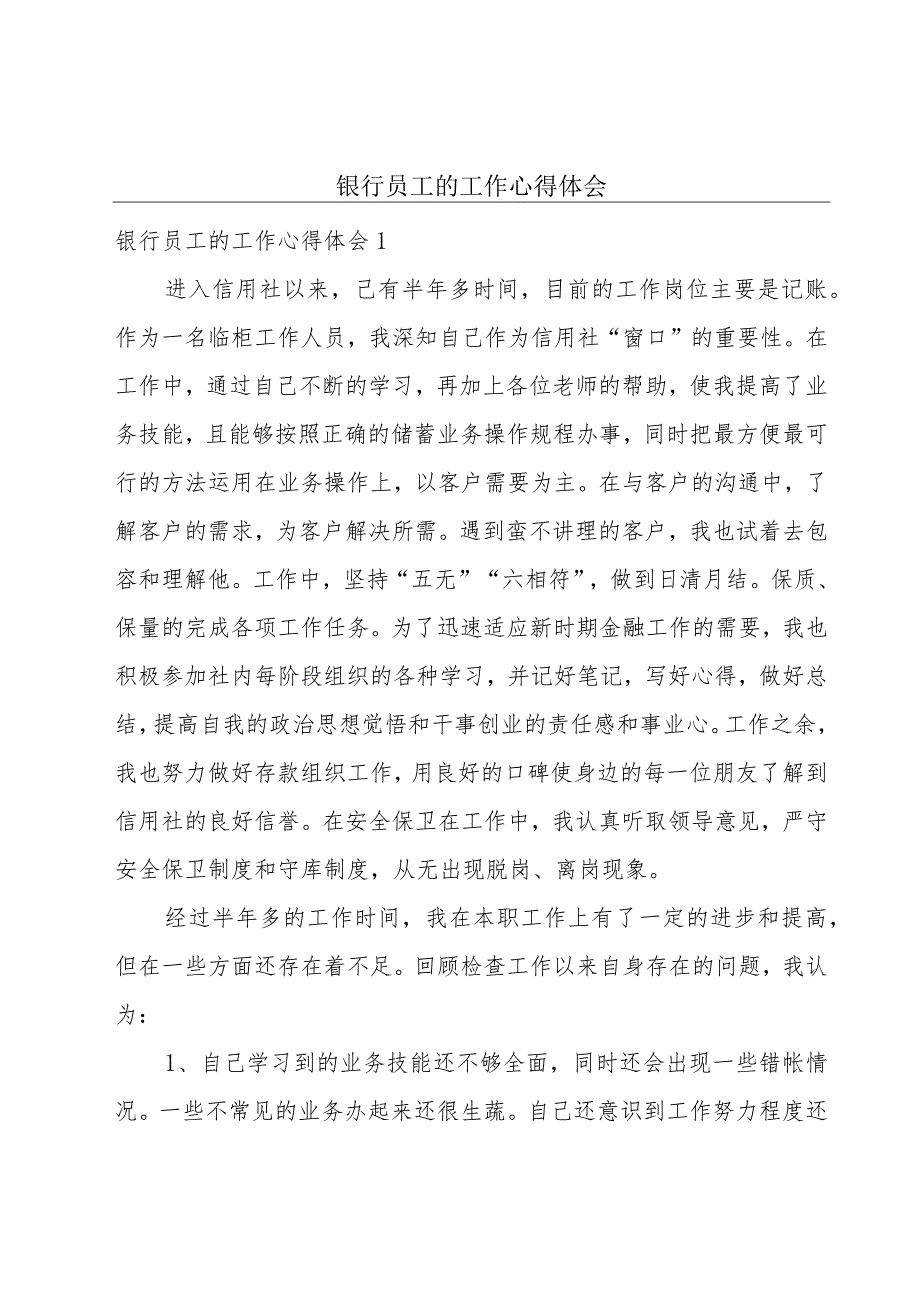 银行员工的工作心得体会
银行员工的工作心得体会1
进入信用社以来，己有半年多时间，目前的工作岗位主要是记账。
作为一名临柜工作人员，我深知自己作为信用社“窗口”的重要性。在
工作中，通过自己不断的学习，再加上各位老师的帮助，使我提高了业
务技能，且能够按照正确的储蓄业务操作规程办事，同时把最方便最可
行的方法运用在业务操作上，以客户需要为主。在与客户的沟通中，了
解客户的需求，为客户解决所需。遇到蛮不讲理的客户，我也试着去包
容和理解他。工作中，坚持“五无”“六相符”，做到日清月结。保质、
保量的完成各项工作任务。为了迅速适应新时期金融工作的需要，我也
积极参加社内每阶段组织的各种学习，并记好笔记，写好心得，做好总
结，提高自我的政治思想觉悟和干事创业的责任感和事业心。工作之余，
我也努力做好存款组织工作，用良好的口碑使身边的每一位朋友了解到
信用社的良好信誉。在安全保卫在工作中，我认真听取领导意见，严守
安全保卫制度和守库制度，从无出现脱岗、离岗现象。
经过半年多的工作时间，我在本职工作上有了一定的进步和提高，
但在一些方面还存在着不足。回顾检查工作以来自身存在的问题，我认
为：
1、自己学习到的业务技能还不够全面，同时还会出现一些错帐情
况。一些不常见的业务办起来还很生蔬。自己还意识到工作努力程度还